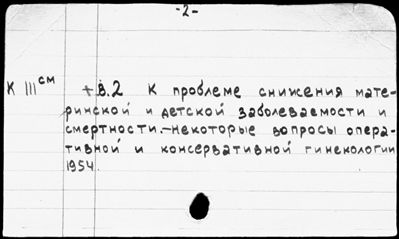 -2-
К III см + в.2 К проблеме снижения мате-
ринской и детской заболеваемости и
смертности.—Некоторые вопросы опера-
тивной и консервативной гинекологии
1954.